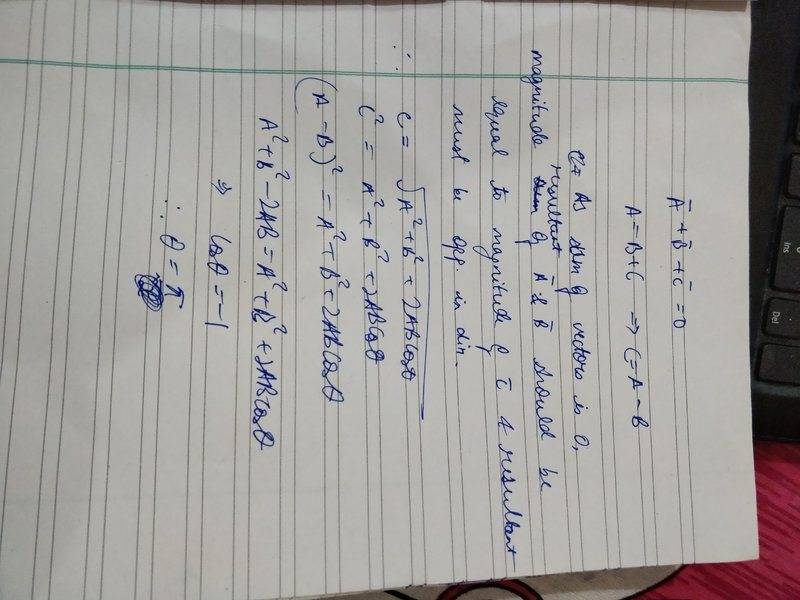 Ā + B̄ + C̄ = 0
A = B + C ⇒ C = A - B
As sum of vectors is 0,
magnitude resultant of Ā & B̄ should be
equal to magnitude of C̄ & resultant
must be opp. in dirn.
∴ C = √A² + B² + 2ABCosθ
C² = A² + B² + 2ABCosθ
(A - B)² = A² + B² + 2ABCosθ
A² + B² - 2AB = A² + B² + 2ABCosθ
⇒ Cosθ = -1
∴ θ = π
Ins
Del